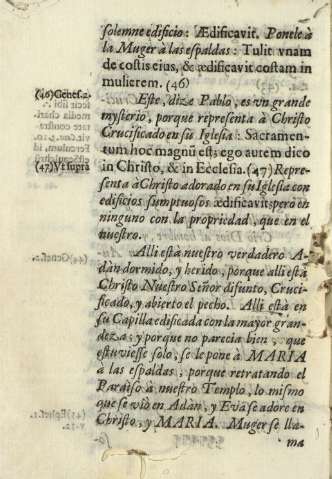 solemne edificio: Ædificavit. Ponele à
la Muger à las espaldas: Tulit vnam
de costis eius, & ædificavit costam in
mulierem. (46)
(46)Genes.2.
Este, dize Pablo, es vn grande
mysterio, porque representa à Christo
Crucificado en su Iglesia: Sacramen-
tum hoc magnũ est; ego autem dico
in Christo, & in Ecclesia. (47) Repre-
(47)Vt suprà
senta à Christo adorado en su Iglesia con
edificios sumptuosos ædificavit; però en
ninguno con la propriedad, que en el
nuestro.
Alli està nuestro verdadero A-
dàn dormido, y herido, porque alli està
Christo Nuestro Señor difunto, Cruci-
ficado, y abierto el pecho. Alli està en
su Capilla edificada con la mayor gran-
deza; y porque no parecia bien, que
estuviesse solo, se le pone à MARIA
à las espaldas; porque retratando el
Paraìso à nuestro Templo, lo mismo
que se viò en Adàn, y Eva se adore en
Christo, y MARIA. Muger se lla-
ma